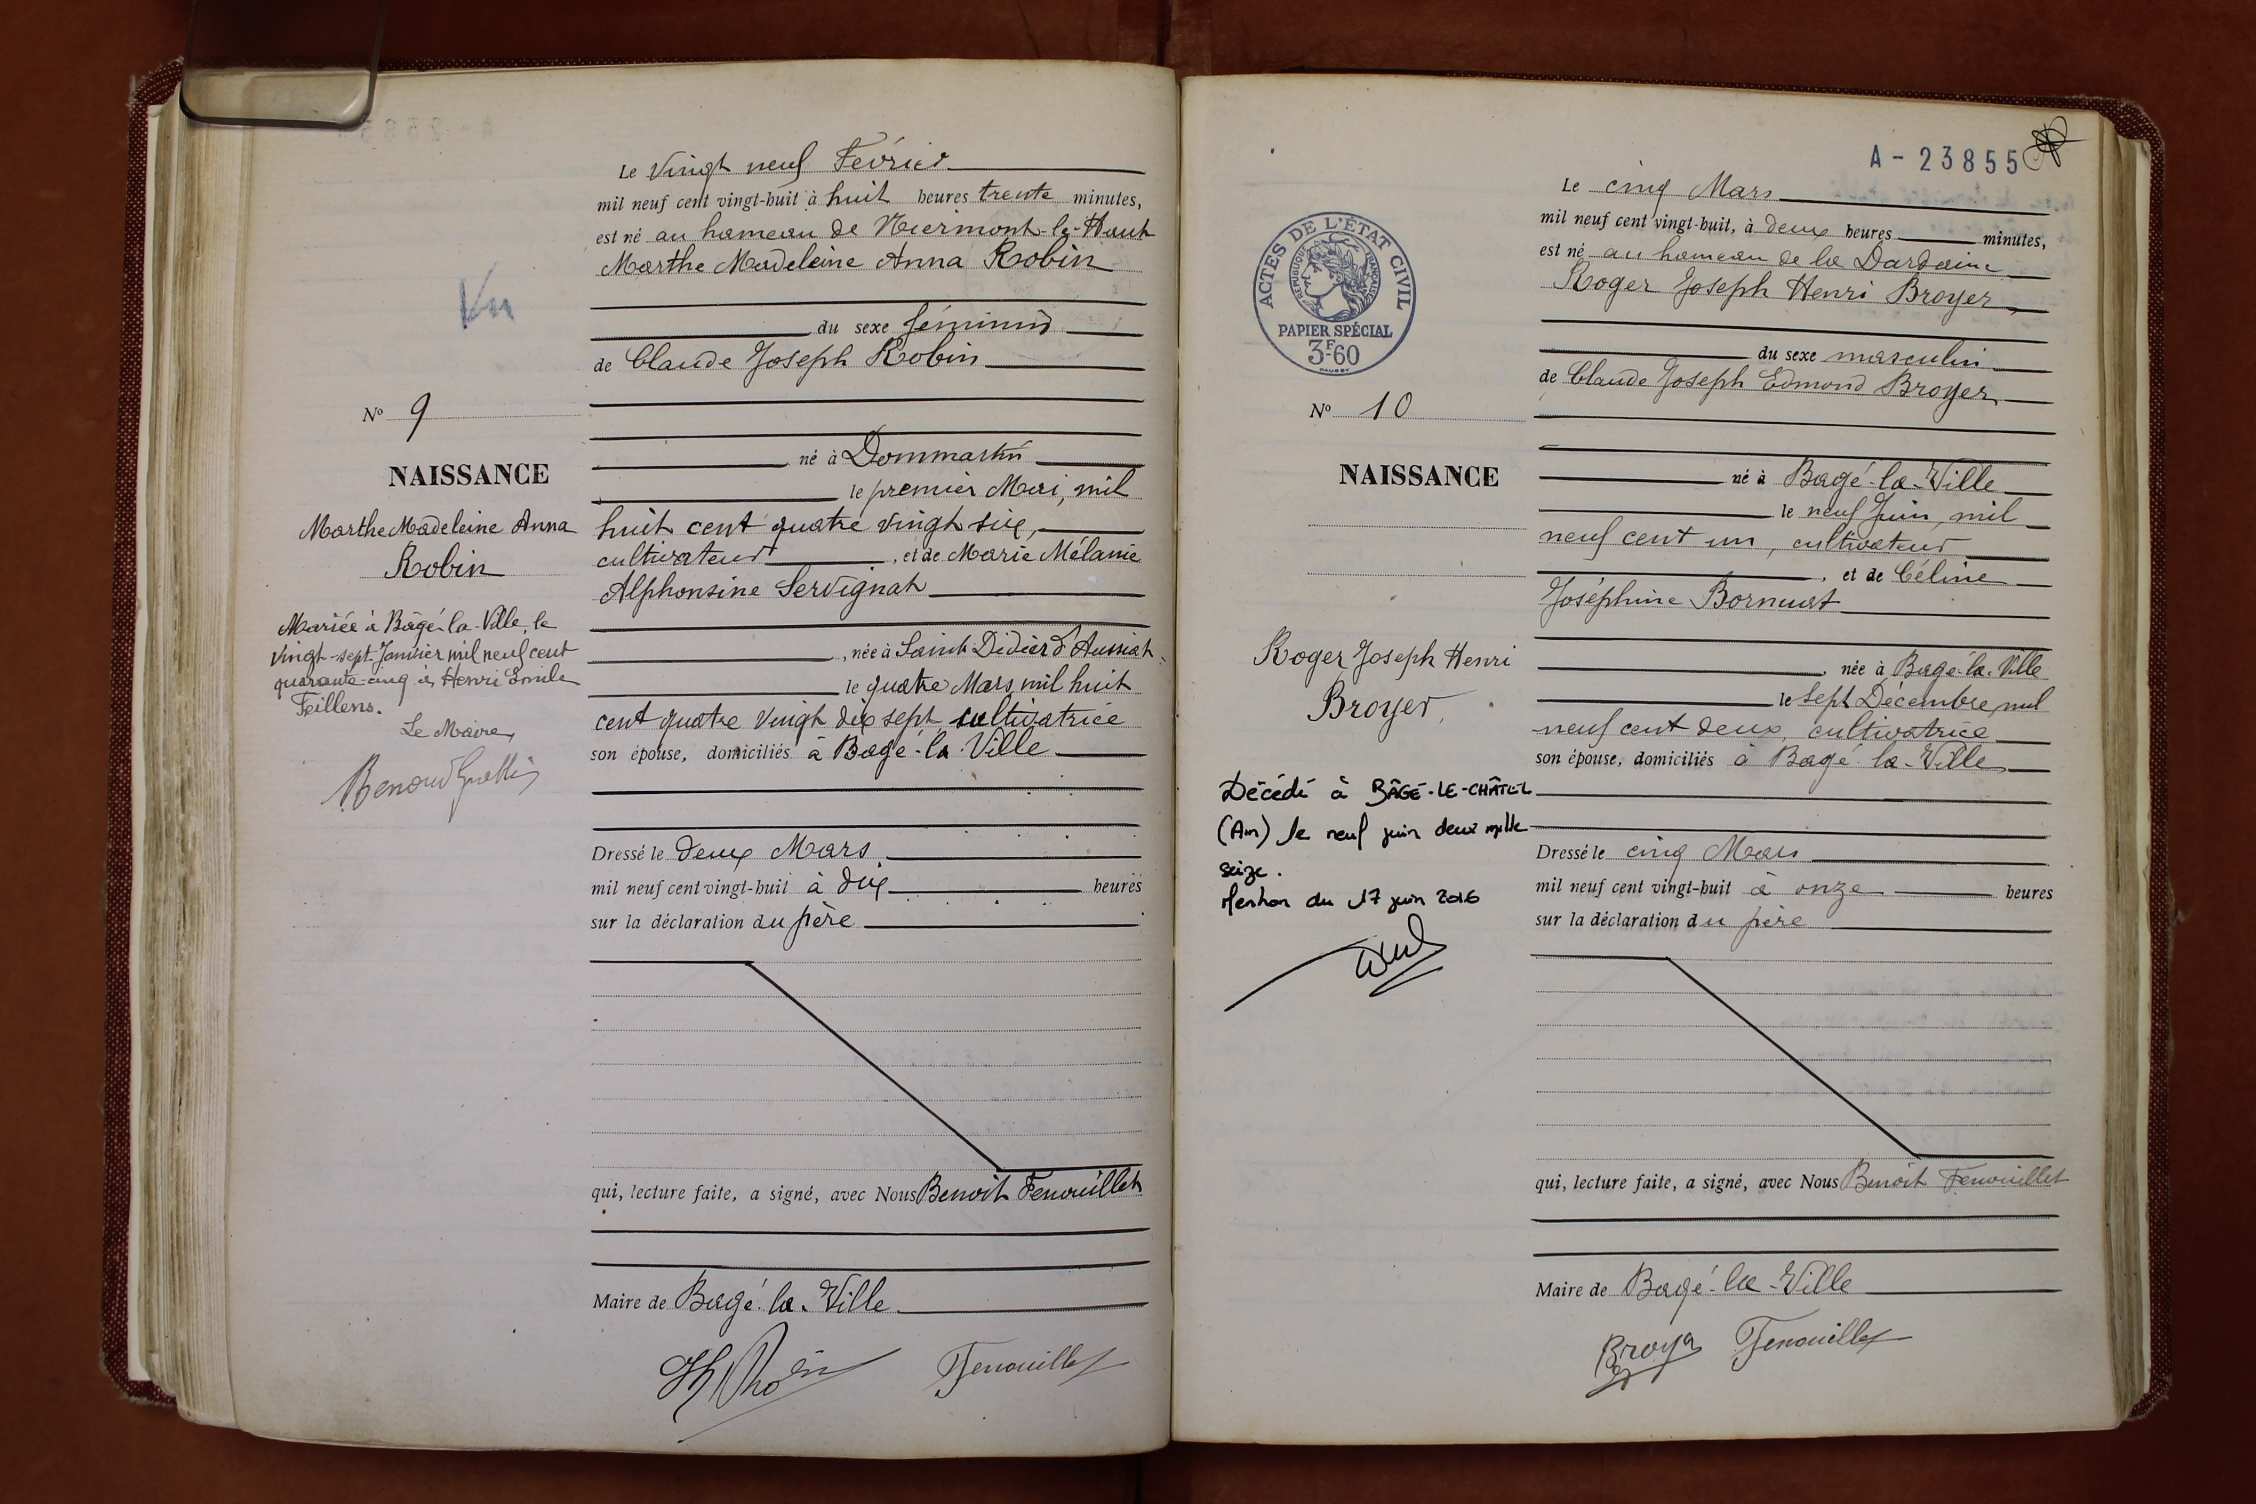 Le Vingt neuf Février
mil neuf cent vingt-huit à huit heures trente minutes,
est né au hameau de Niermont-le-Haut
Marthe Madeleine Anna Robin
du sexe féminin
de Claude Joseph Robin
Nº 9
né à Dommartin
NAISSANCE
le premier Mai, mil
Marthe Madeleine Anna
Robin
huit cent quatre vingt six,
cultivateur, et de Marie Mélanie
Alphonsine Servignat
Mariée à Bâgé-la-Ville, le
vingt-sept Janvier mil neuf cent
quarante-cinq à Henri Emile
Feillens.
Le Maire,
, née à Saint Didier d'Aussiat,
le quatre Mars mil huit
cent quatre vingt dix sept cultivatrice
son épouse, domiciliés à Bagé-la-Ville
Dressé le deux Mars
mil neuf cent vingt-huit à dix heures
sur la déclaration du père
qui, lecture faite, a signé, avec Nous Benoit Fenouillet
Maire de Bagé-la-Ville
Fenouillet
A-23855
Le cinq Mars
mil neuf cent vingt-huit, à deux heures minutes,
est né au hameau de la Dardaine
Roger Joseph Henri Broyer,
ACTES DE L'ÉTAT CIVIL
RÉPUBLIQUE FRANÇAISE
PAPIER SPÉCIAL
3F60
du sexe masculin
de Claude Joseph Edmond Broyer
Nº 10
NAISSANCE
né à Bagé-la-Ville
le neuf Juin, mil
neuf cent un, cultivateur
, et de Céline
Joséphine Bornuat
Roger Joseph Henri
Broyer,
, née à Bagé-la-Ville
le sept Décembre, mil
neuf cent deux, cultivatrice
son épouse, domiciliés à Bagé-la-Ville
Décédé à BÂGÉ-LE-CHÂTEL
(Ain) le neuf juin deux mille
seize.
Mention du 17 juin 2016
Dressé le cinq Mars
mil neuf cent vingt-huit à onze heures
sur la déclaration du père
qui, lecture faite, a signé, avec Nous Benoit Fenouillet
Maire de Bagé-la-Ville
Broyer Fenouillet